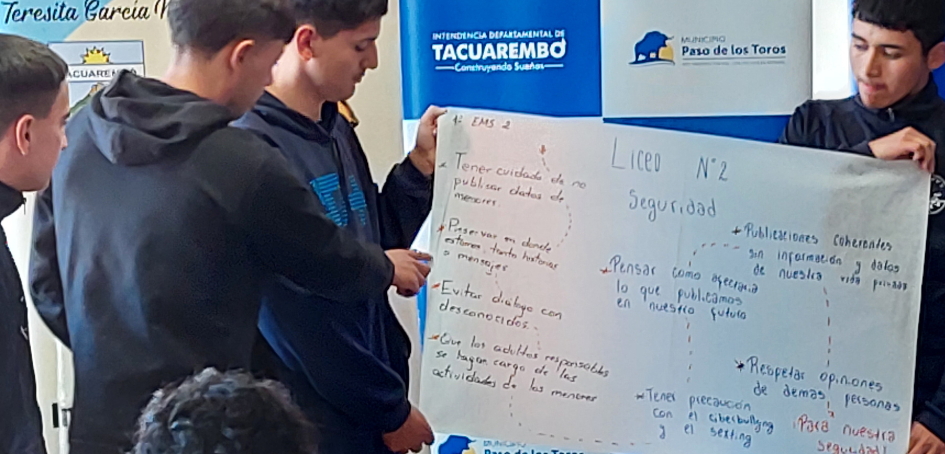 Teresita García
ACUAREM
INTENDENCIA DEPARTAMENTAL DE
TACUAREMBÓ
Construyendo Sueños
MUNICIPIO
Paso de los Toros
1: EMS 2
Liceo N°2
Seguridad
* Tener cuidado de no
publicar datos de
menores.
* Preservar en donde
estamos tanto historias
o mensajes
* Evitar diálogo con
desconocidos.
* Que los adultos responsables
se hagan cargo de las
actividades de los menores
* Pensar como afectaria
lo que publicamos
en nuestro futuro
* Tener precaución
con el ciberbullyng
y el sexting
* Publicaciones coherentes
sin información y datos
de nuestra vida privada
* Respetar opiniones
de demas personas
¡Para nuestra
seguridad!
MUNICIPIO
Paso de los Toros